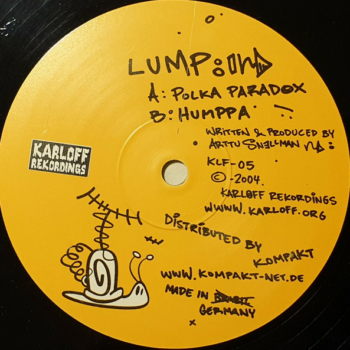 LUMP:
A: POLKA PARADOX
B: HUMPPA
WRITTEN & PRODUCED BY
ARTTU SNELLMAN
KARLOFF
REKORDINGS
KLF-05
© -2004
KARLOFF REKORDINGS
WWW.KARLOFF.ORG
DISTRIBUTED BY
KOMPAKT
WWW.KOMPAKT-NET.DE
MADE IN BRASIL
GERMANY